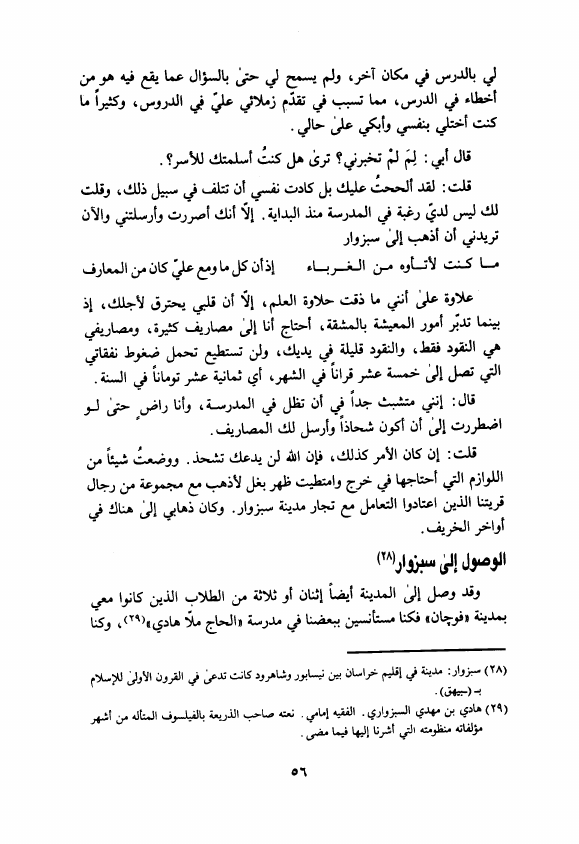 لي بالدرس في مكان آخر، ولم يسمح لي حتىٰ بالسؤال عما يقع فيه هو من
أخطاء في الدرس، مما تسبب في تقدّم زملائي عليّ في الدروس، وكثيراً ما
كنت أختلي بنفسي وأبكي علىٰ حالي.
قال أبي: لِمَ لمْ تخبرني؟ ترىٰ هل كنتُ أسلمتك للأسر؟.
قلت: لقد ألححتُ عليك بل كادت نفسي أن تتلف في سبيل ذلك، وقلت
لك ليس لديّ رغبة في المدرسة منذ البداية. إلّا أنك أصررت وأرسلتني والآن
تريدني أن أذهب إلىٰ سبزوار
مـا كـنت لأتـأوه مـن الـغـربـاء إذ أن كل ما ومع عليّ كان من المعارف
علاوة علىٰ أنني ما ذقت حلاوة العلم، إلّا أن قلبي يحترق لأجلك، إذ
بينما تدبّر أمور المعيشة بالمشقة، أحتاج أنا إلىٰ مصاريف كثيرة، ومصاريفي
هي النقود فقط، والنقود قليلة في يديك، ولن تستطيع تحمل ضغوط نفقاتي
التي تصل إلىٰ خمسة عشر قراناً في الشهر، أي ثمانية عشر توماناً في السنة.
قال: إنني متشبث جداً في أن تظل في المدرسـة، وأنا راضٍ حتىٰ لـو
اضطررت إلىٰ أن أكون شحاذاً وأرسل لك المصاريف.
قلت: إن كان الأمر كذلك، فإن الله لن يدعك تشحذ. ووضعتُ شيئاً من
اللوازم التي أحتاجها في خرج وامتطيت ظهر بغل لأذهب مع مجموعة من رجال
قريتنا الذين اعتادوا التعامل مع تجار مدينة سبزوار. وكان ذهابي إلىٰ هناك في
أواخر الخريف.
الوصول إلىٰ سبزوار(٢٨)
وقد وصل إلىٰ المدينة أيضاً إثنان أو ثلاثة من الطلاب الذين كانوا معي
بمدينة «قوچان» فكنا مستأنسين ببعضنا في مدرسة «الحاج ملّا هادي»(٢٩)، وكنا
(٢٨) سبزوار: مدينة في إقليم خراسان بين نيسابور وشاهرود كانت تدعىٰ في القرون الأولىٰ للإسلام
بـ (سبيهق).
(٢٩) هادي بن مهدي السبزواري. الفقيه إمامي. نعته صاحب الذريعة بالفيلسوف المتأله من أشهر
مؤلفاته منظومته التي أشرنا إليها فيما مضى.
٥٦